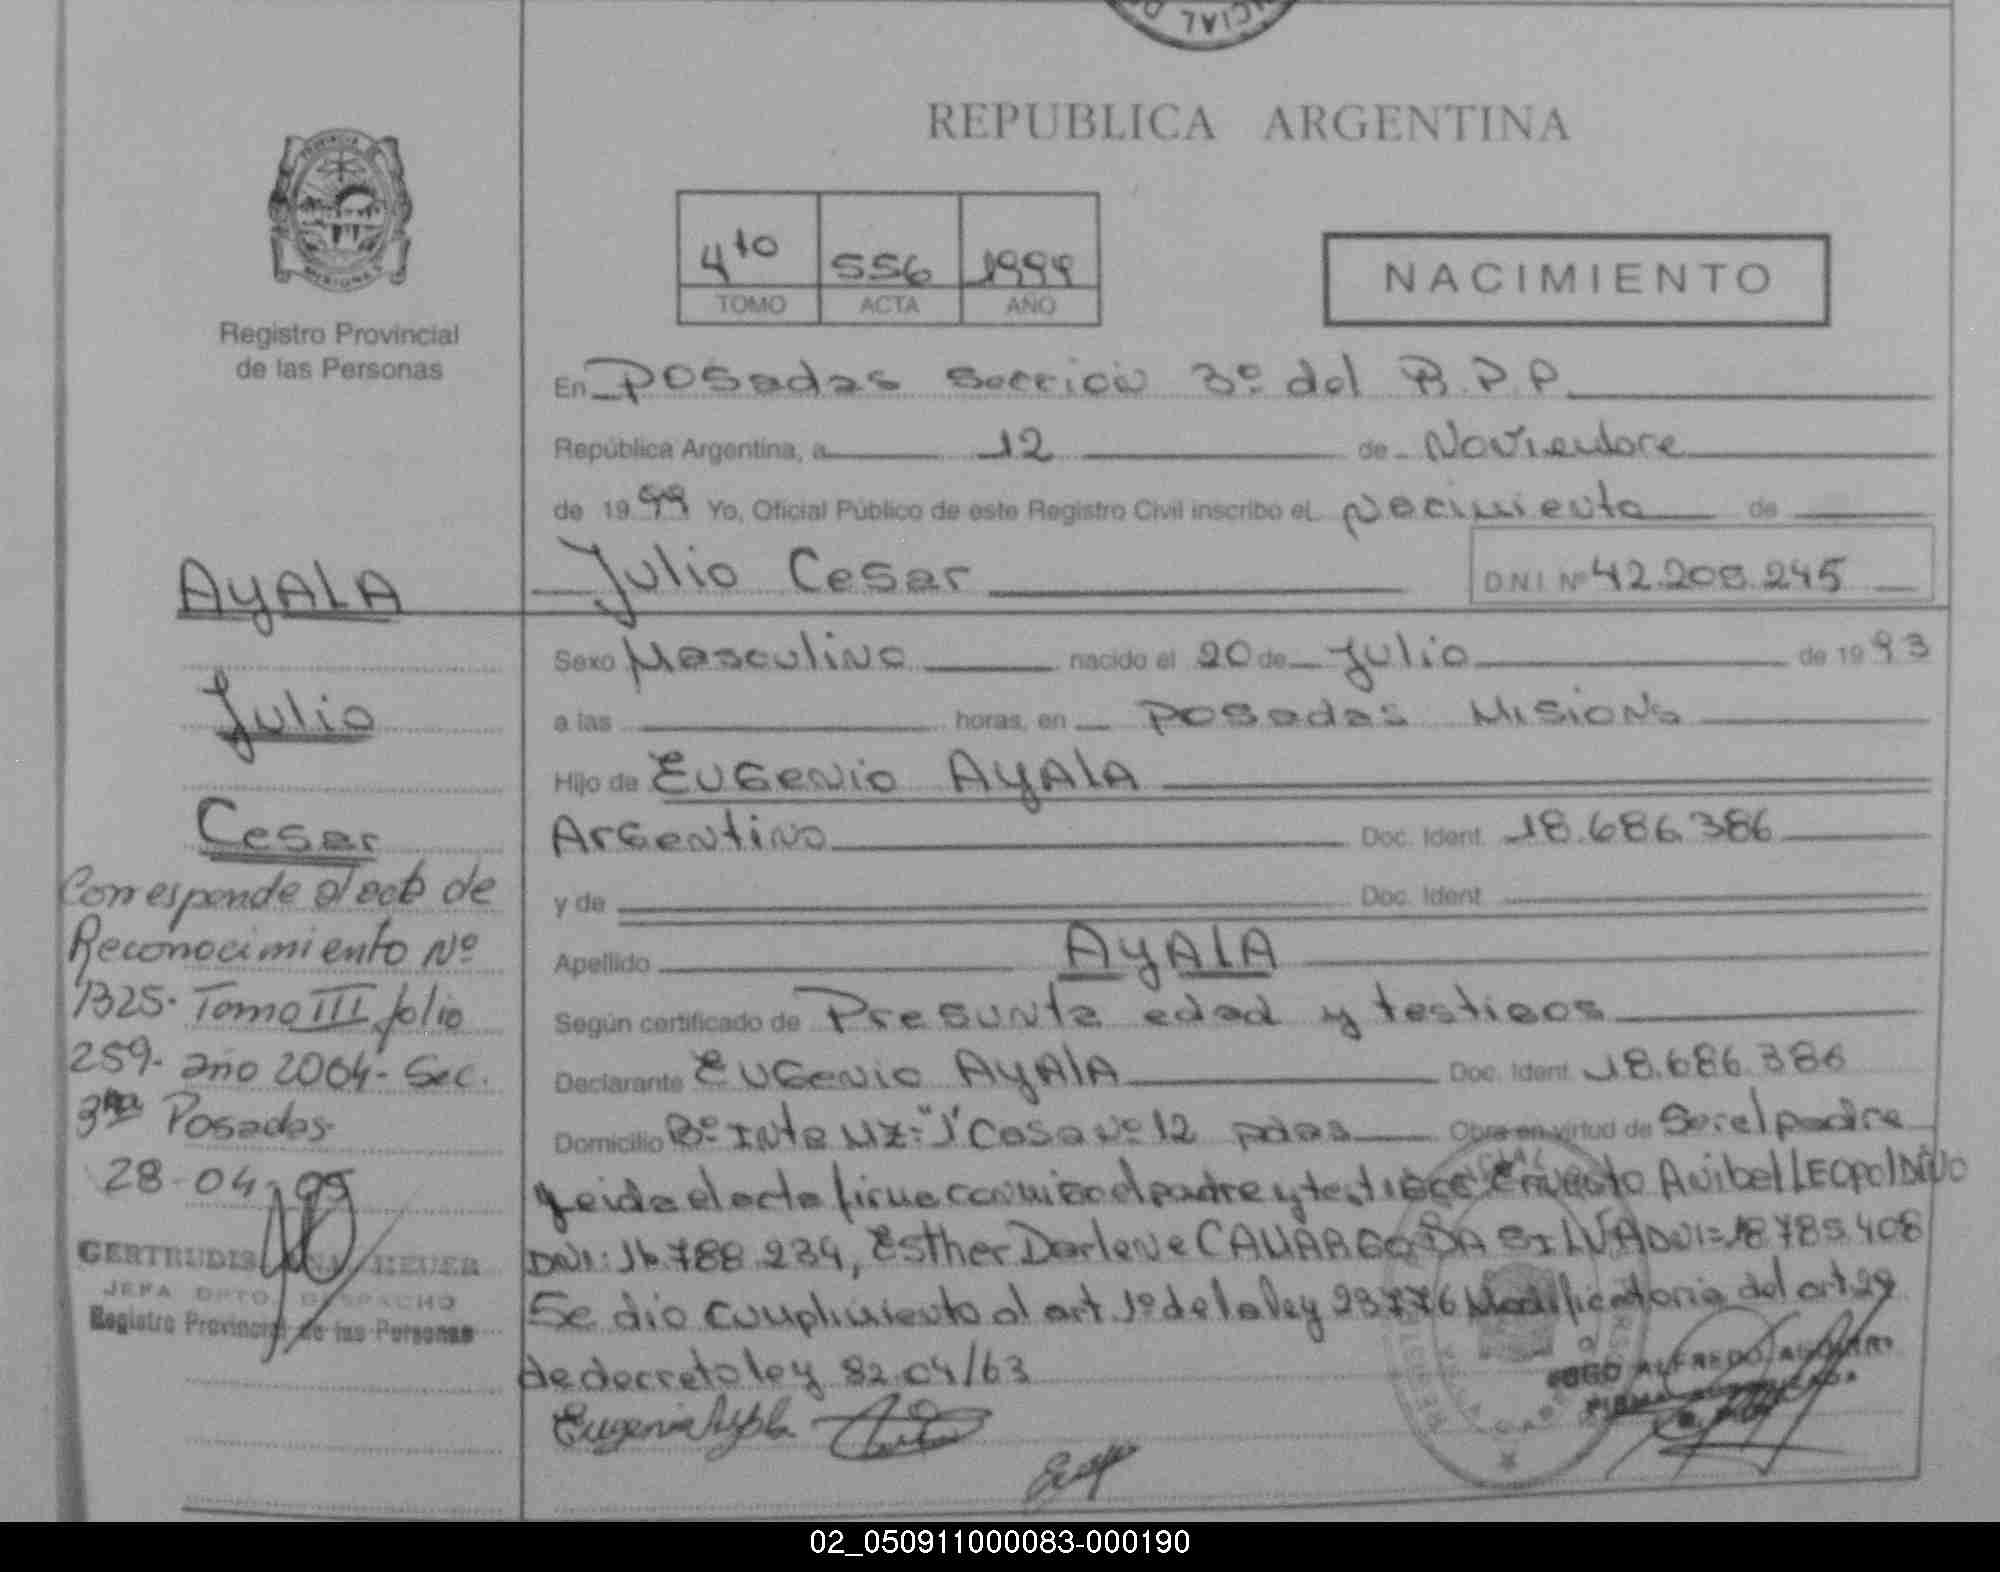 REPUBLICA ARGENTINA
4to 556 1999
TOMO ACTA AÑO
NACIMIENTO
Registro Provincial
de las Personas
En Posadas Seccion 3º del R.P.P.
República Argentina, a 12 de Noviembre
de 1999 Yo, Oficial Público de este Registro Civil inscribo el Nacimiento de
Julio Cesar D.N.I. Nº 42.208.245
Sexo Masculino nacido el 20 de Julio de 1993
a las horas, en Posadas Misions
Hijo de Eugenio AyAlA
Argentino Doc. Ident. 18.686.386
y de Doc. Ident.
Apellido AyAlA
Según certificado de Presunta edad y testigos
Declarante Eugenio AyAlA Doc. Ident. 18.686.386
Domicilio Bº Inta MZ: "J" Casa Nº 12 pdas Obra en virtud de Ser el padre
Leida el acta firma conmigo el padre y testigos Ernesto Anibal
DNI: 16.788.234, Esther Darlene CAMARGO DA SILVA DNI= 18.785.408
Se dio cumplimiento al art. 1º de la ley 23776 Modificatoria del art 29
de decreto ley 8204/63
Eugenio Ayala
AyAlA
Julio
Cesar
Corresponde al acta de
Reconocimiento Nº
1325. Tomo III folio
259. año 2004 - Sec.
3ra Posadas.
28-04-
GERTRUDIS MEYER
JEFA DPTO. DESPACHO
Registro Provincial de las Personas
02_050911000083-000190